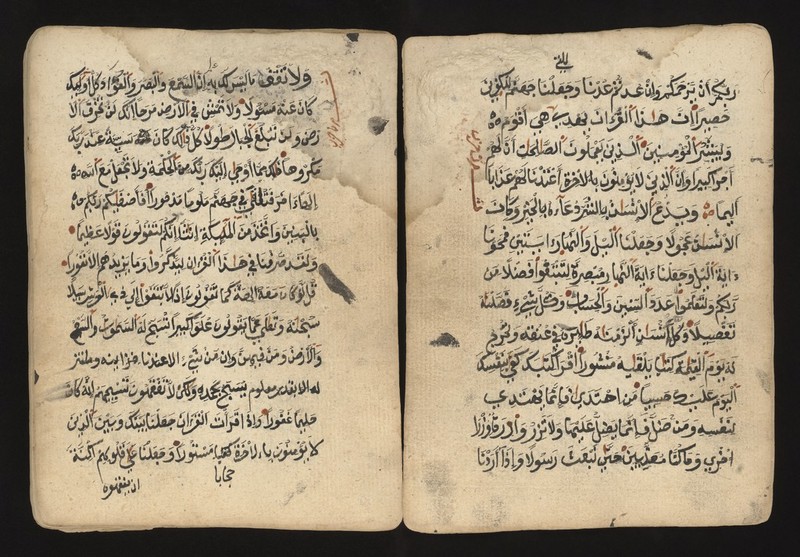 ربكم ان يرحمكم وان عدتم عدنا وجعلنا جهنم للكفرين
حصيرا ان هذا القران يهدي هي اقوم
ويبشر المؤمنين الذين يعملون الصالحات ان لهم
اجرا كبيرا وان الذين لا يؤمنون بالاخرة اعتدنا لهم عذابا
اليما ويدع الانسان بالشر دعاءه بالخير وكان
الانسان عجولا وجعلنا اليل والنهار ايتين فمحونا
ءاية اليل وجعلنا ءاية النهار مبصرة لتبتغوا فضلا من
ربكم ولتعلموا عدد السنين والحساب وكل شيء فصلنه
تفصيلا وكل انسان الزمنه طئره في عنقه ونخرج
له يوم القيمة كتبا يلقيه منشورا اقرا كتبك كفى بنفسك
اليوم عليك حسيبا من اهتدى فانما يهتدي
لنفسه ومن ضل فانما يضل عليها ولا تزر وازرة وزر
اخرى وما كنا معذبين حتى نبعث رسولا واذا اردنا
ولا تقف ما ليس لك به علم ان السمع والبصر والفؤاد كل اولئك
كان عنه مسئولا ولا تمش في الارض مرحا انك لن تخرق الا
رض ولن تبلغ الجبال طولا كل ذلك كان سيئة عند ربك
مكروها ذلك مما اوحى اليك ربك من الحكمة ولا تجعل مع الله
الها ءاخر فتلقى في جهنم ملوما مدحورا افاصفيكم ربكم
بالبنين واتخذ من الملئكة انثا انكم لتقولون قولا عظيما
ولقد صرفنا في هذا القران ليذكروا وما يزيدهم الا نفورا
قل لو كان معه الهة كما تقولون اذا لابتغوا الى ذي العرش سبيلا
سبحنه وتعلى عما يقولون علوا كبيرا تسبح له السموت السبع
والارض ومن فيهن وان من شيء الا عندنا خزاينه وما ننز
له الا بقدر معلوم يسبح بحمده ولكن لا تفقهون تسبيحهم انه كان
حليما غفورا واذا قرات القران جعلنا بينك وبين الذين
لا يؤمنون بالاخرة حجابا مستورا وجعلنا على قلوبهم اكنة
ان يفقهوه